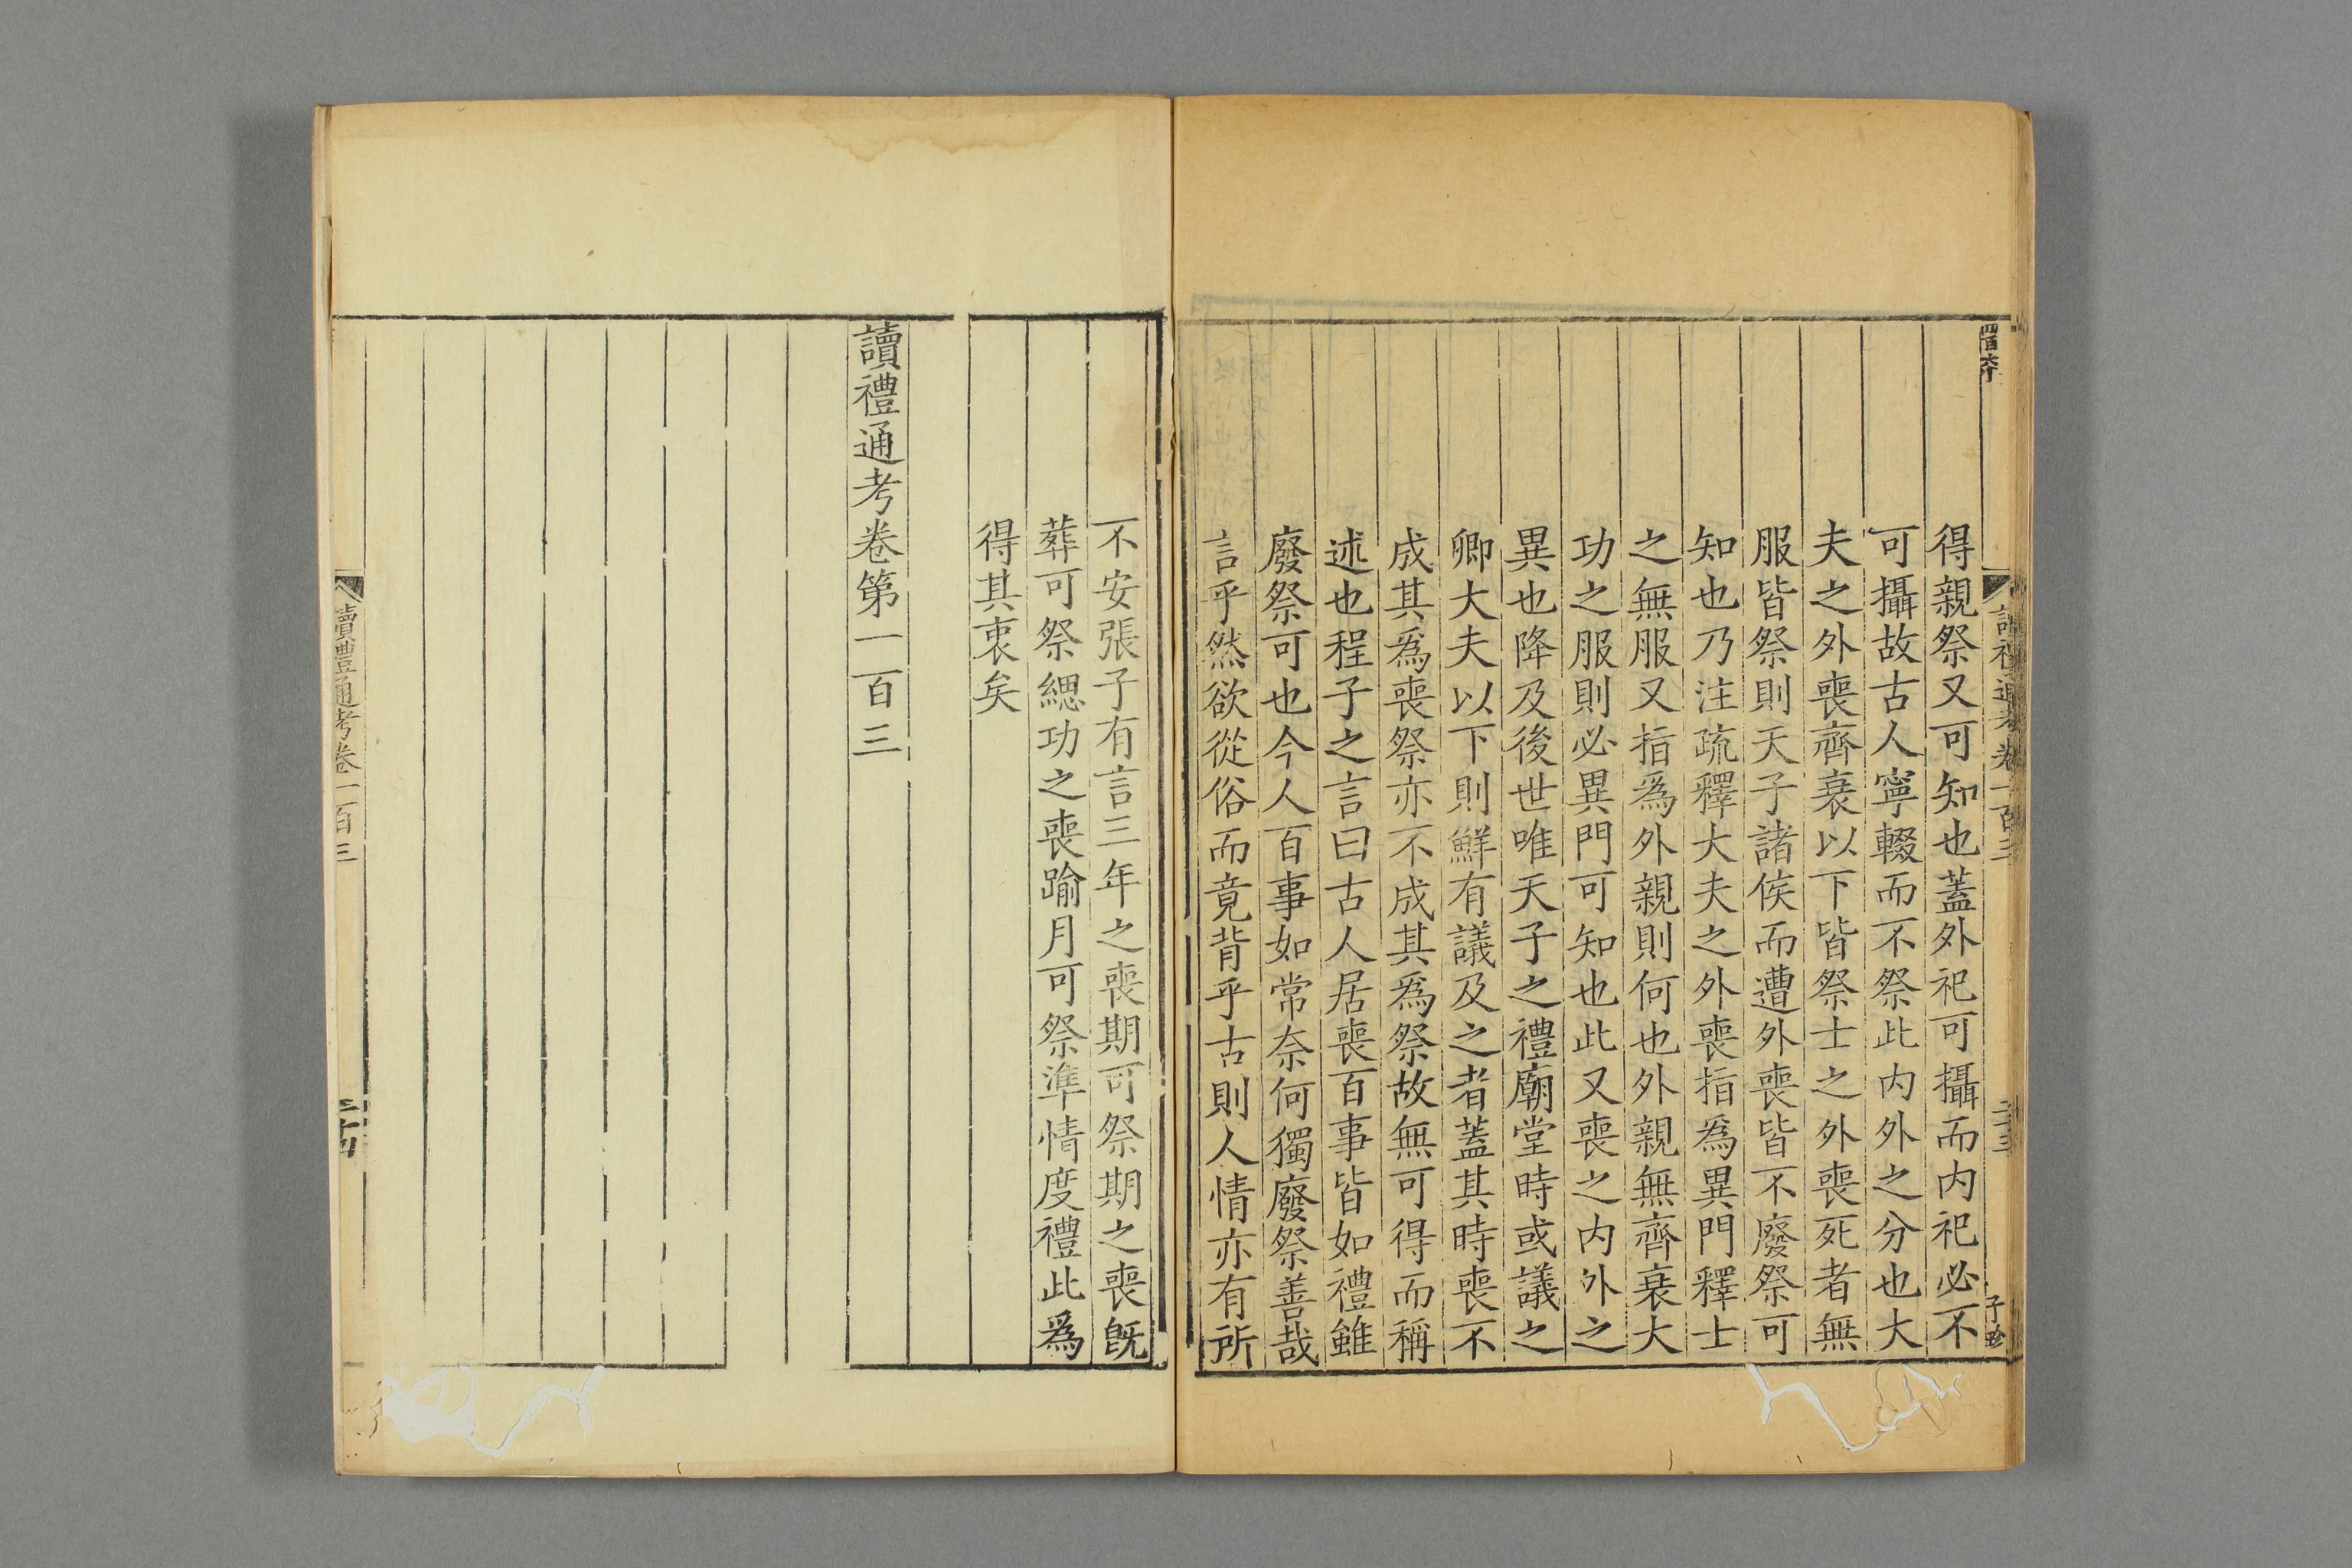 得親祭又可知也蓋外祀可攝而内祀必不
可攝故古人寧輟而不祭此内外之分也大
夫之外喪齊衰以下皆祭士之外喪死者無
服皆祭則天子諸侯而遭外喪皆不廢祭可
知也乃注疏釋大夫之外喪指爲異門釋士
之無服又指爲外親則何也外親無齊衰大
功之服則必異門可知也此又喪之内外之
異也降及後世唯天子之禮廟堂時或議之
卿大夫以下則鮮有議及之者蓋其時喪不
成其爲喪祭亦不成其爲祭故無可得而稱
述也程子之言曰古人居喪百事皆如禮雖
廢祭可也今人百事如常奈何獨廢祭善哉
言乎然欲從俗而竟背乎古則人情亦有所
不安張子有言三年之喪期可祭期之喪旣
葬可祭緦功之喪踰月可祭準情度禮此爲
得其衷矣
讀禮通考卷第一百三
讀禮通考卷一百三
三十四